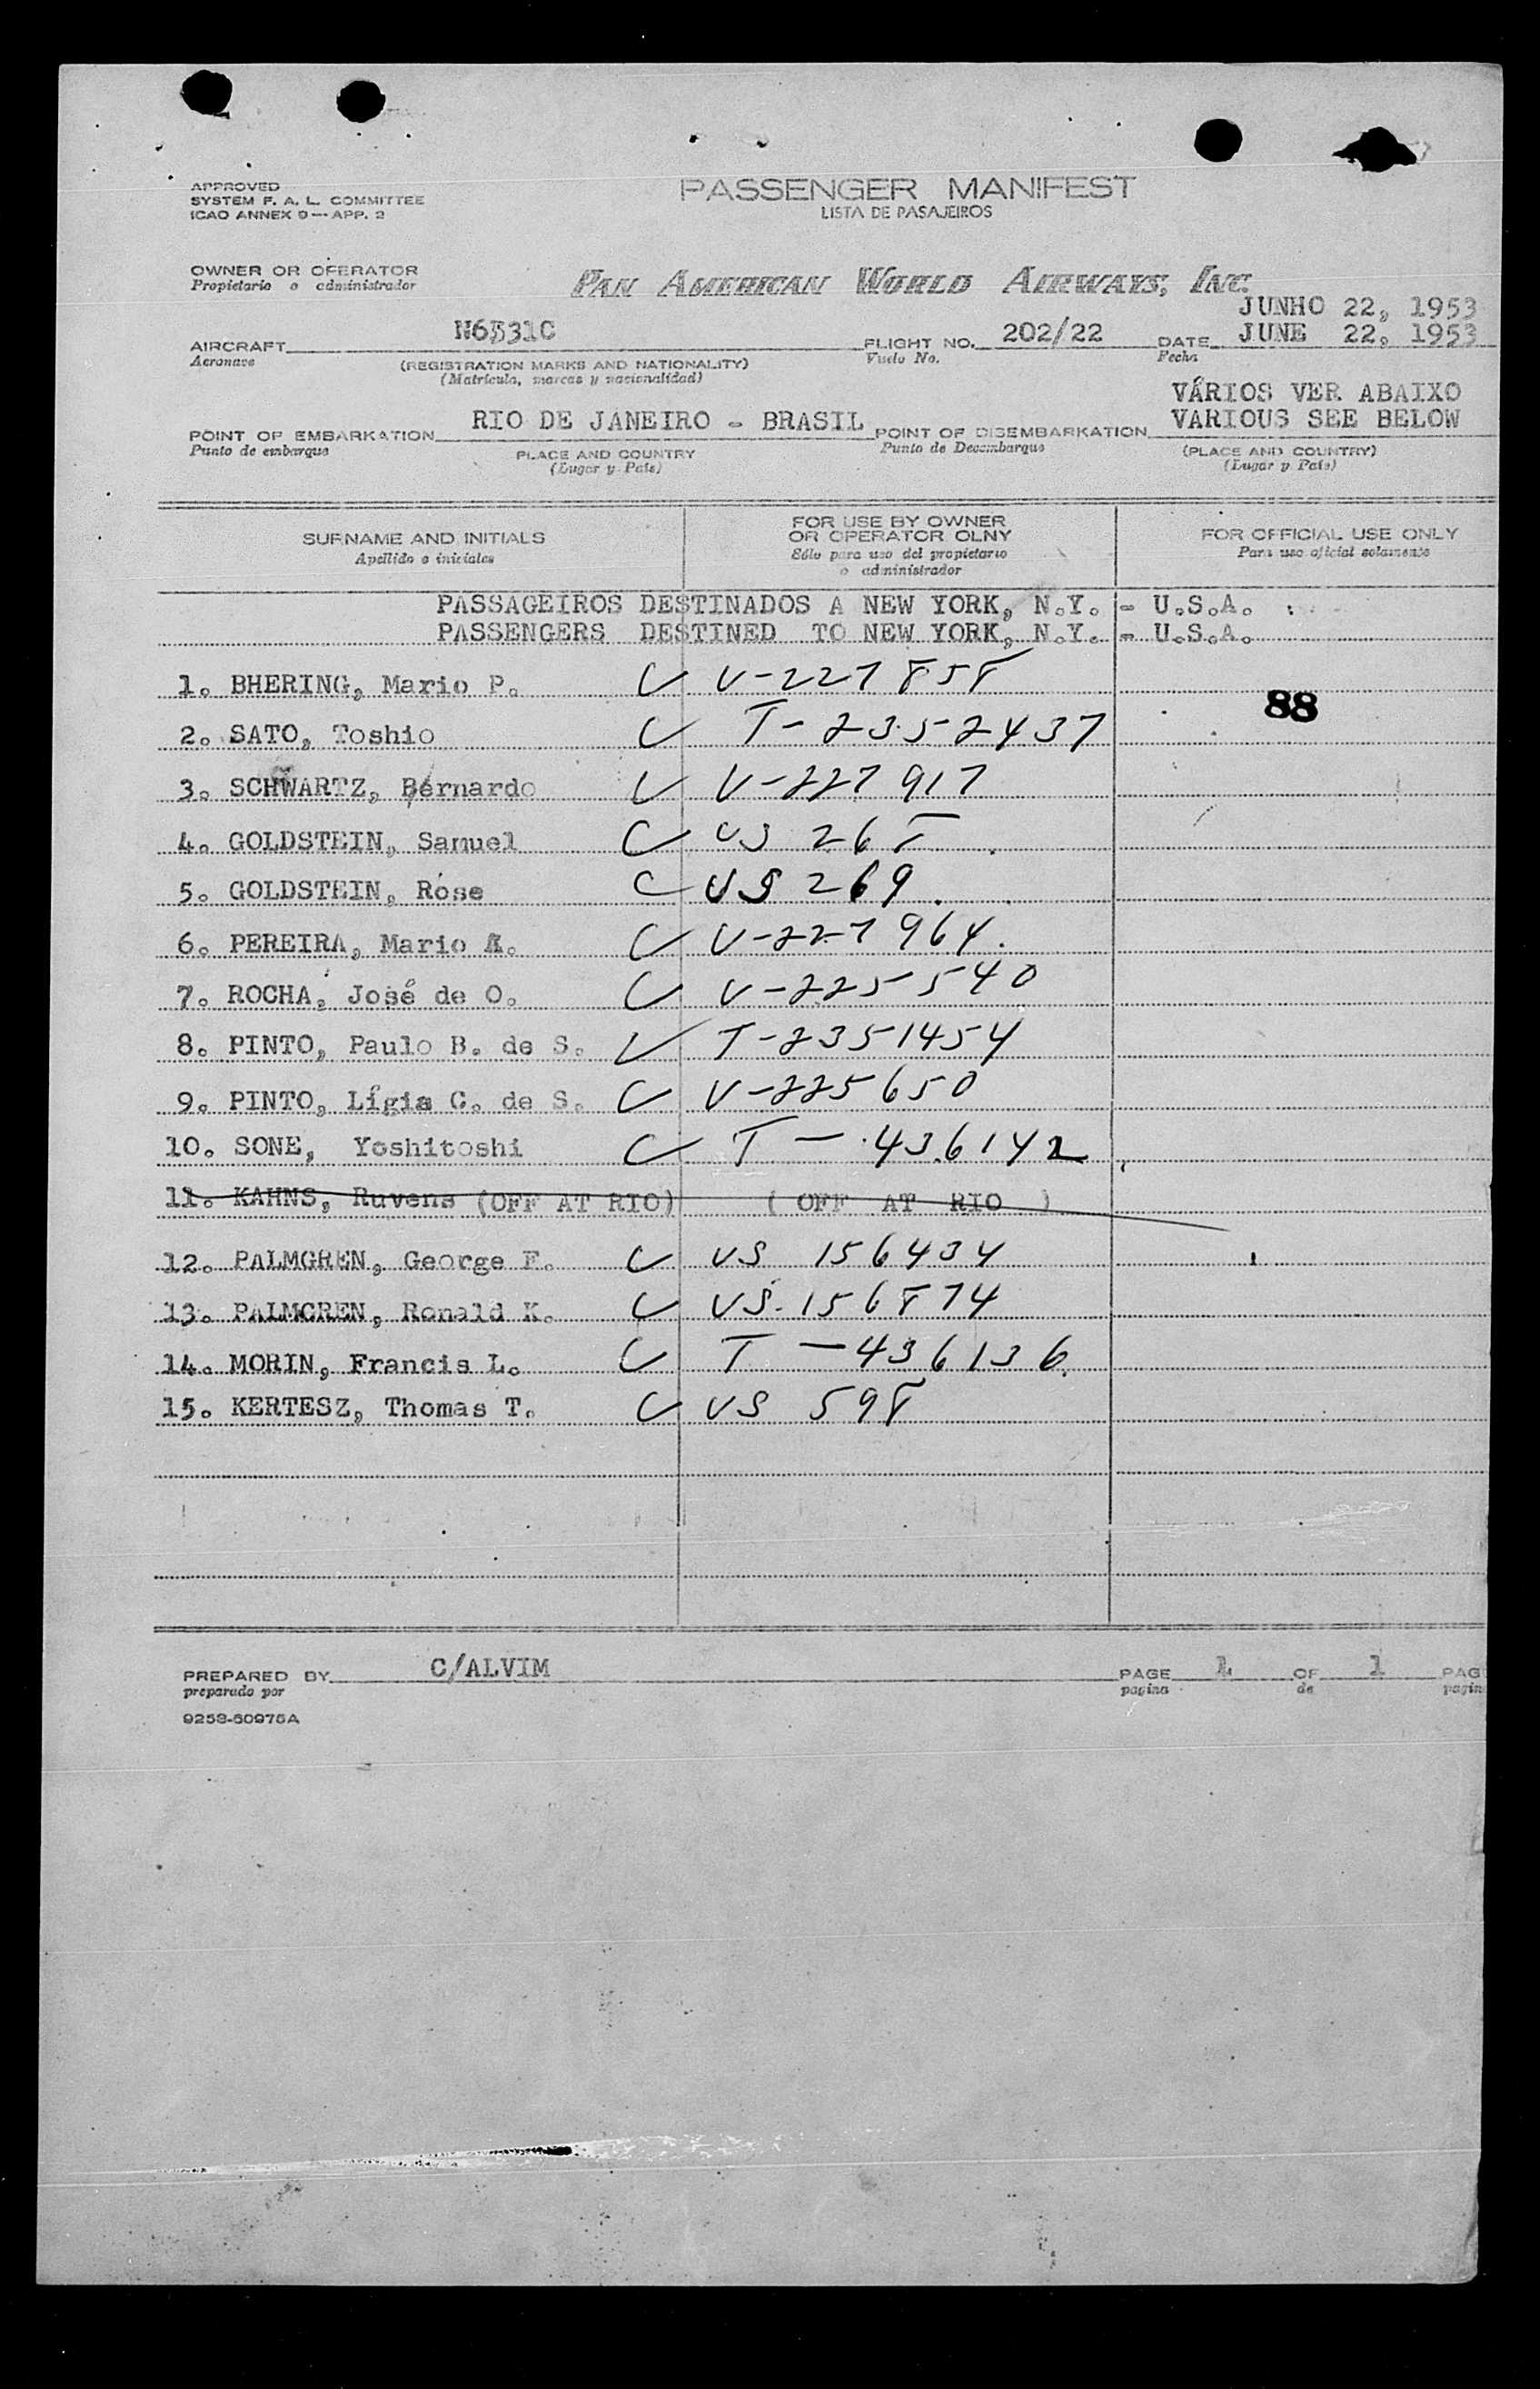 APPROVED
SYSTEM F. A. L. COMMITTEE
ICAO ANNEX 9 — APP. 2
PASSENGER MANIFEST
LISTA DE PASAJEIROS
OWNER OR OPERATOR
Propietario o administrador
PAN AMERICAN WORLD AIRWAYS, INC.
JUNHO 22, 1953
AIRCRAFT N6531C FLIGHT NO. 202/22 DATE JUNE 22, 1953
Aeronave (REGISTRATION MARKS AND NATIONALITY) Vuelo No. Fecha
(Matrícula, marcas y nacionalidad)
VÁRIOS VER ABAIXO
POINT OF EMBARKATION RIO DE JANEIRO - BRASIL POINT OF DISEMBARKATION VARIOUS SEE BELOW
Punto de embarque PLACE AND COUNTRY Punto de Desembarque (PLACE AND COUNTRY)
(Lugar y País) (Lugar y País)
SURNAME AND INITIALS
Apellido e iniciales
FOR USE BY OWNER
OR OPERATOR OLNY
Sólo para uso del propietario
o administrador
FOR OFFICIAL USE ONLY
Para uso oficial solamente
PASSAGEIROS DESTINADOS A NEW YORK, N.Y. - U.S.A.
PASSENGERS DESTINED TO NEW YORK, N.Y. - U.S.A.
1. BHERING, Mario P. V-227858
88
2. SATO, Toshio T-2352437
3. SCHWARTZ, Bernardo V-227917
4. GOLDSTEIN, Samuel US 268
5. GOLDSTEIN, Rose US 269
6. PEREIRA, Mario A. V-227964
7. ROCHA, José de O. V-225540
8. PINTO, Paulo B. de S. T-2351454
9. PINTO, Lígia C. de S. V-225650
10. SONE, Yoshitoshi T-436142
11. KAHNS, Ruvens (OFF AT RIO) ( OFF AT RIO )
12. PALMGREN, George F. US 156434
13. PALMGREN, Ronald K. US 156874
14. MORIN, Francis L. T-436136
15. KERTESZ, Thomas T. US 598
PREPARED BY C/ALVIM PAGE 1 OF 1 PAG
preparado por pagina de pagin
9258-60975A